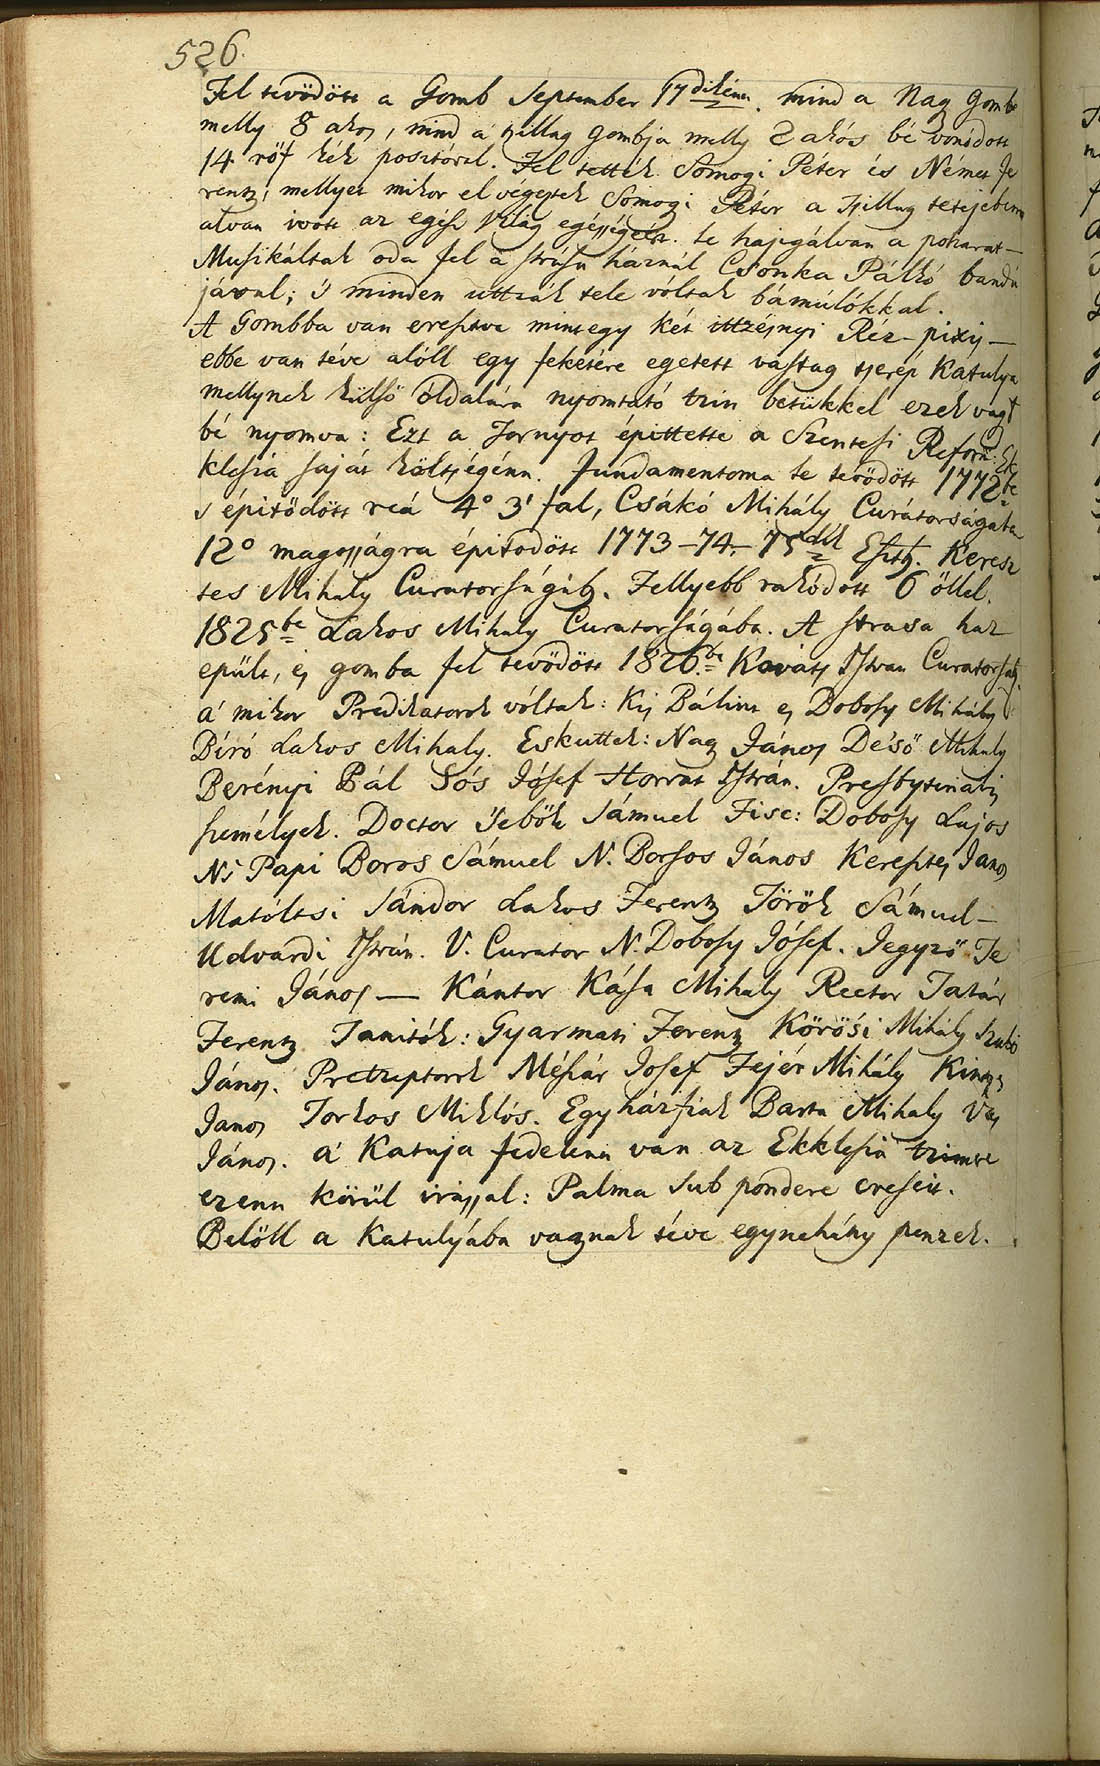 526.
Fel tevődött a Gomb September 17dikénn. mind a Nagy Gomb
melly 8 akós, mind a tsillag gombja melly 2 akós bé vonódott
14 rőf kék posztóval. Fel tették Somogi Péter és Német Fe
rentz, mellyet mikor el végeztek Somogi Péter a Tsillag tetejébenn
álván ivott az egész Világ egésségéért. le hajigálván a poharat —
Musikáltak oda fel a strása háznál Csonka Palkó bandá
jával; 's minden uttzák tele vóltak bámúlókkal.
A Gombba van eresztve mintegy két ittzésnyi Réz-pixis —
ebbe van téve alóll egy feketére egetett vastag tserép Katulya
mellynek külső óldalára nyomtató tzin betűkkel ezek vagy
bé nyomva: Ezt a Tornyot építtette a Szentesi Reform. Ek
klesia saját költségénn. Fundamentoma le tevődött 1772be
s épitődött reá 4° 3' fal, Csákó Mihály Curátorságába
12° magosságra épitődött 1773–74.–75dik Eszt. Keresz
tes Mihaly Curatorságáb. Fellyebb rakódott 6 öllel.
1825be Lakos Mihaly Curatorságába. A strása ház
epült, és gomba fel tevődött 1826.be Kováts Istvan Curatorság.
á mikor Predikatorok vóltak: Kis Bálint es Dobosy Mihály
Bíró Lakos Mihaly. Eskuttek: Nagy János Déső Mihaly
Berényi Pál Sós Jósef Horvat István. Presbyterialis
személyek. Doctor Sebők Sámuel Fisc: Dobosy Lajos
N. Papi Boros Sámuel N. Borsos János Keresztes Janos
Matóltsi Sándor Lakos Ferentz Török Sámuel —
Udvardi István. V. Curator N. Dobosy Jósef. Jegyző Te
remi János — Kántor Kása Mihaly Rector Tatár
Ferentz Tanitók: Gyarmati Ferentz Körösi Mihály Szabó
János. Pretzeptorok Mészár Josef Fejér Mihály
Janos Torkos Miklós. Egyházfiak Barta Mihaly Vas
János. á Katuja fedelenn van az Ekklesia tzimere
ezenn körül irással: Palma sub pondere crescit.
Belöll a Katulyába vagynak téve egynehány penzek.